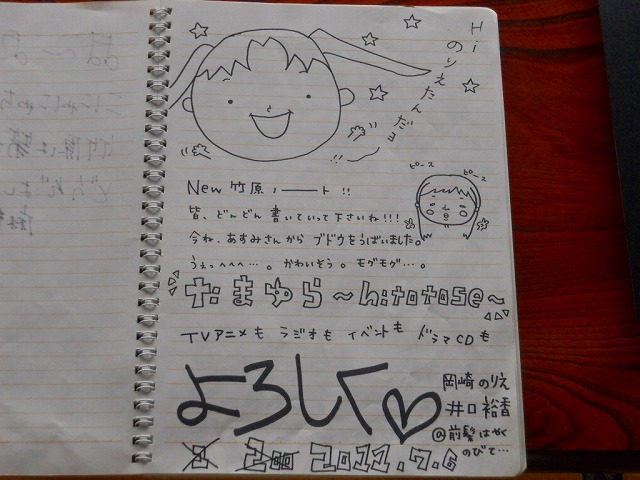 Hi
のりえたんだョ
!!
ピース ピース
New 竹原ノート !!
皆、どんどん書いていって下さいね!!!
今ね、あすみさんからブドウをうばいました。
うぇっへへへ…。かわいそう。モグモグ…。
たまゆら～hitotose～
TVアニメも ラジオも イベントも ドラマCDも
よろしく♡
岡崎のりえ
井口裕香
@前髪はやく
のびて…
2011.7.6